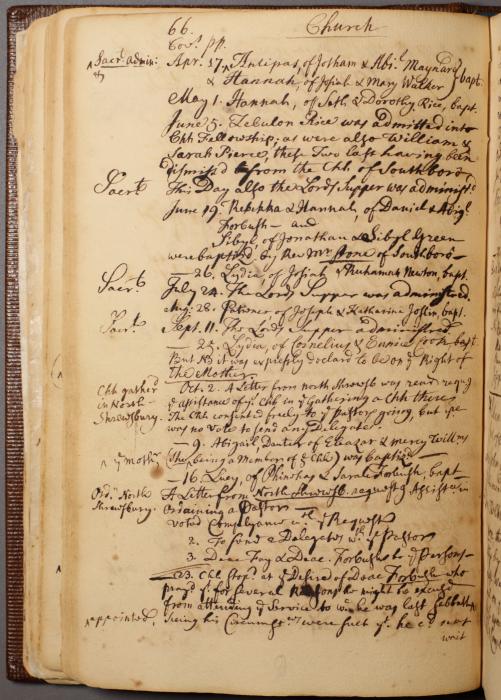 66. Church
Cov.t pp.
Sacr.t admin: Apr. 17, Antipas, of Jotham & Abi.l Maynard
& Hannah, of Josiah & Mary Walker } bapt.
May 1. Hannah, of Seth & Dorothy Rice, bapt
June 5. Zebulon Rice was admitted into
Chh Fellowship; as were also William &
Sarah Pierce, these Two last having been
dismiss'd from the Chh. of Southboro.
Sacr.t This Day also the Lord's Supper was administ.d
June 19. Rebekka & Hannah, of Daniel & Abig.l
Forbush — and
Sibyl, of Jonathan & Sibyl Green
were baptized, by Rev Mr Stone of Southboro —
— 26. Lydia, of Josiah & Ruhamah Newton, bapt.
Sacr.t July 24. The Lords Supper was administered.
Aug: 28. Patience of Joseph & Katharine Joslin, bapt.
Sacr.t Sept. 11. The Lords Supper administered
— 25. Lydia, of Cornelius & Eunice Cook, bapt
But NB it was expressly declard to be on ye Right of
The Mother
Chh gather'd Oct. 2. A Letter from north Shrewsb was read requg
in North- ye assistance of ye Chh in ye Gathering a Chh there
Shrewsbury. The Chh consented freely to ye pastors going, but
was no vote to send any Delegates.
— 9. Abigail Dauter of Eleazar & mercy Willms
^ ye mothr (She being a Member of ye Chh) was baptized
— 16. Lucy, of Phinehas & Sarah Forbush, bapt
Ord.n North A Letter from North Shrewsb. requestg Assistce in
Shrewsbury. Ordaining a Pastor
Voted Complyance wth ye Request
2. To send 2 Delegates wth ye Pastor
3. Deac Fay & Deac. Forbush ye Persons —
— 23. Chh Stop'd at ye Desire of Deac Forbush who
pray'd yt for several Reasons he might be excus'd
from attending ye Service to wch he was last Sabbath
^ appointed seeing his Circumstces were such yt he cd not
wait